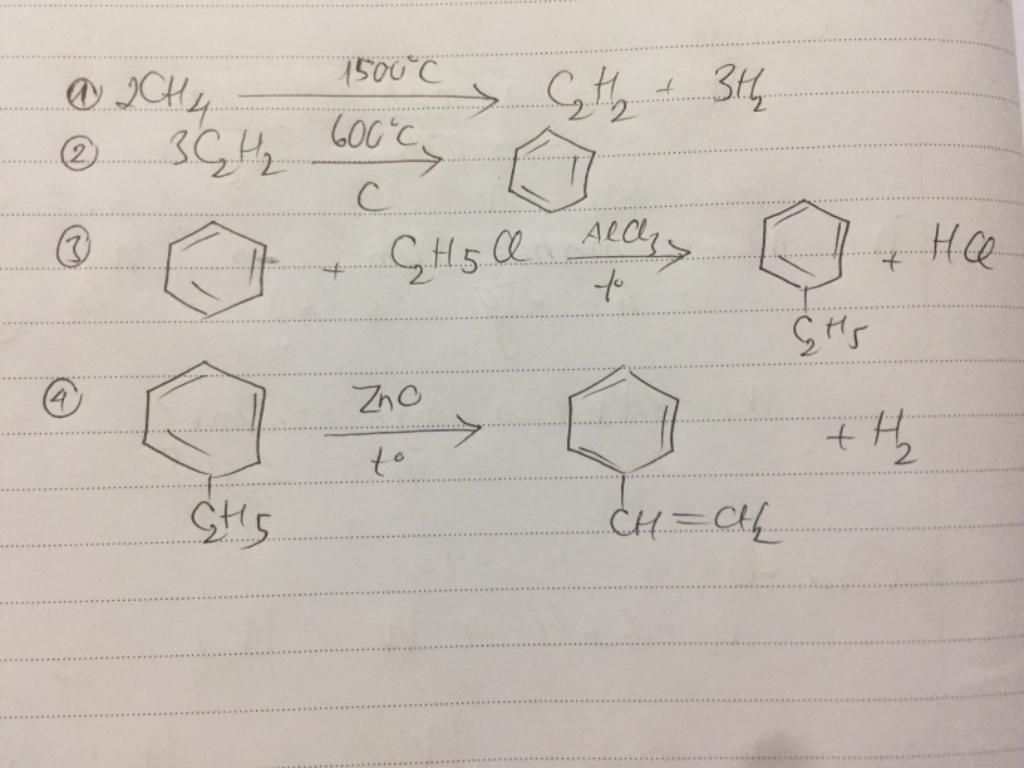 ① 2CH₄ 1500°C → C₂H₂ + 3H₂
② 3C₂H₂ 600°C → C
③ + C₂H₅Cl AlCl₃ → t° + HCl
C₂H₅
④ ZnO → t° + H₂
C₂H₅ CH=CH₂